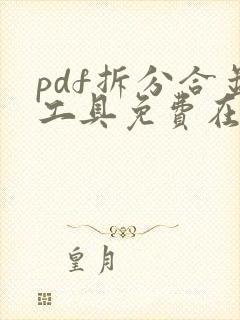 pdf拆分合
工具免費在
皇月